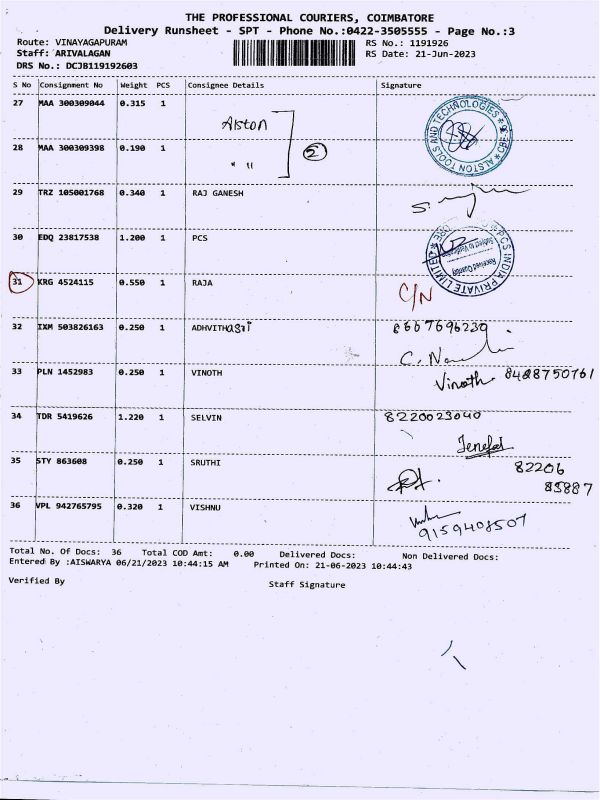 THE PROFESSIONAL COURIERS, COIMBATORE
Delivery Runsheet - SPT - Phone No.:0422-3505555 - Page No.:3
Route: VINAYAGAPURAM RS No.: 1191926
Staff: ARIVALAGAN RS Date: 21-Jun-2023
DRS No.: DCJB119192603
S No Consignment No Weight PCS Consignee Details Signature
27 MAA 300309044 0.315 1 Alston
28 MAA 300309398 0.190 1 " " 2
ALSTON TOOLS AND TECHNOLOGIES * CBE
29 TRZ 105001768 0.340 1 RAJ GANESH
30 EDQ 23817538 1.200 1 PCS
PCS INDIA PRIVATE LIMITED
Received Quantity
Subject to Verification
31 KRG 4524115 0.550 1 RAJA C/N
32 IXM 503826163 0.250 1 ADHVITHasri 8667696230
33 PLN 1452983 0.250 1 VINOTH Vinoth 8428750761
34 TDR 5419626 1.220 1 SELVIN 8220023040
35 STY 863608 0.250 1 SRUTHI 82206
83887
36 VPL 942765795 0.320 1 VISHNU
9159408507
Total No. Of Docs: 36 Total COD Amt: 0.00 Delivered Docs: Non Delivered Docs:
Entered By :AISWARYA 06/21/2023 10:44:15 AM Printed On: 21-06-2023 10:44:43
Verified By Staff Signature